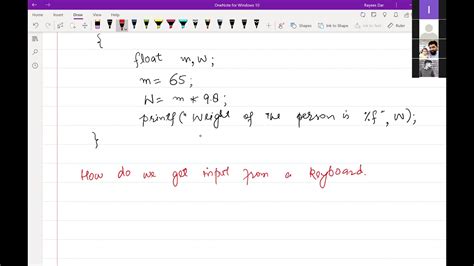 OneNote for Windows 10
Rayees Dar
Home Insert Draw View Help
I
{
float m,w;
m = 65;
W = m * 9.8;
printf("Weight of the person is %f", W);
}
How do we get input from a keyboard.